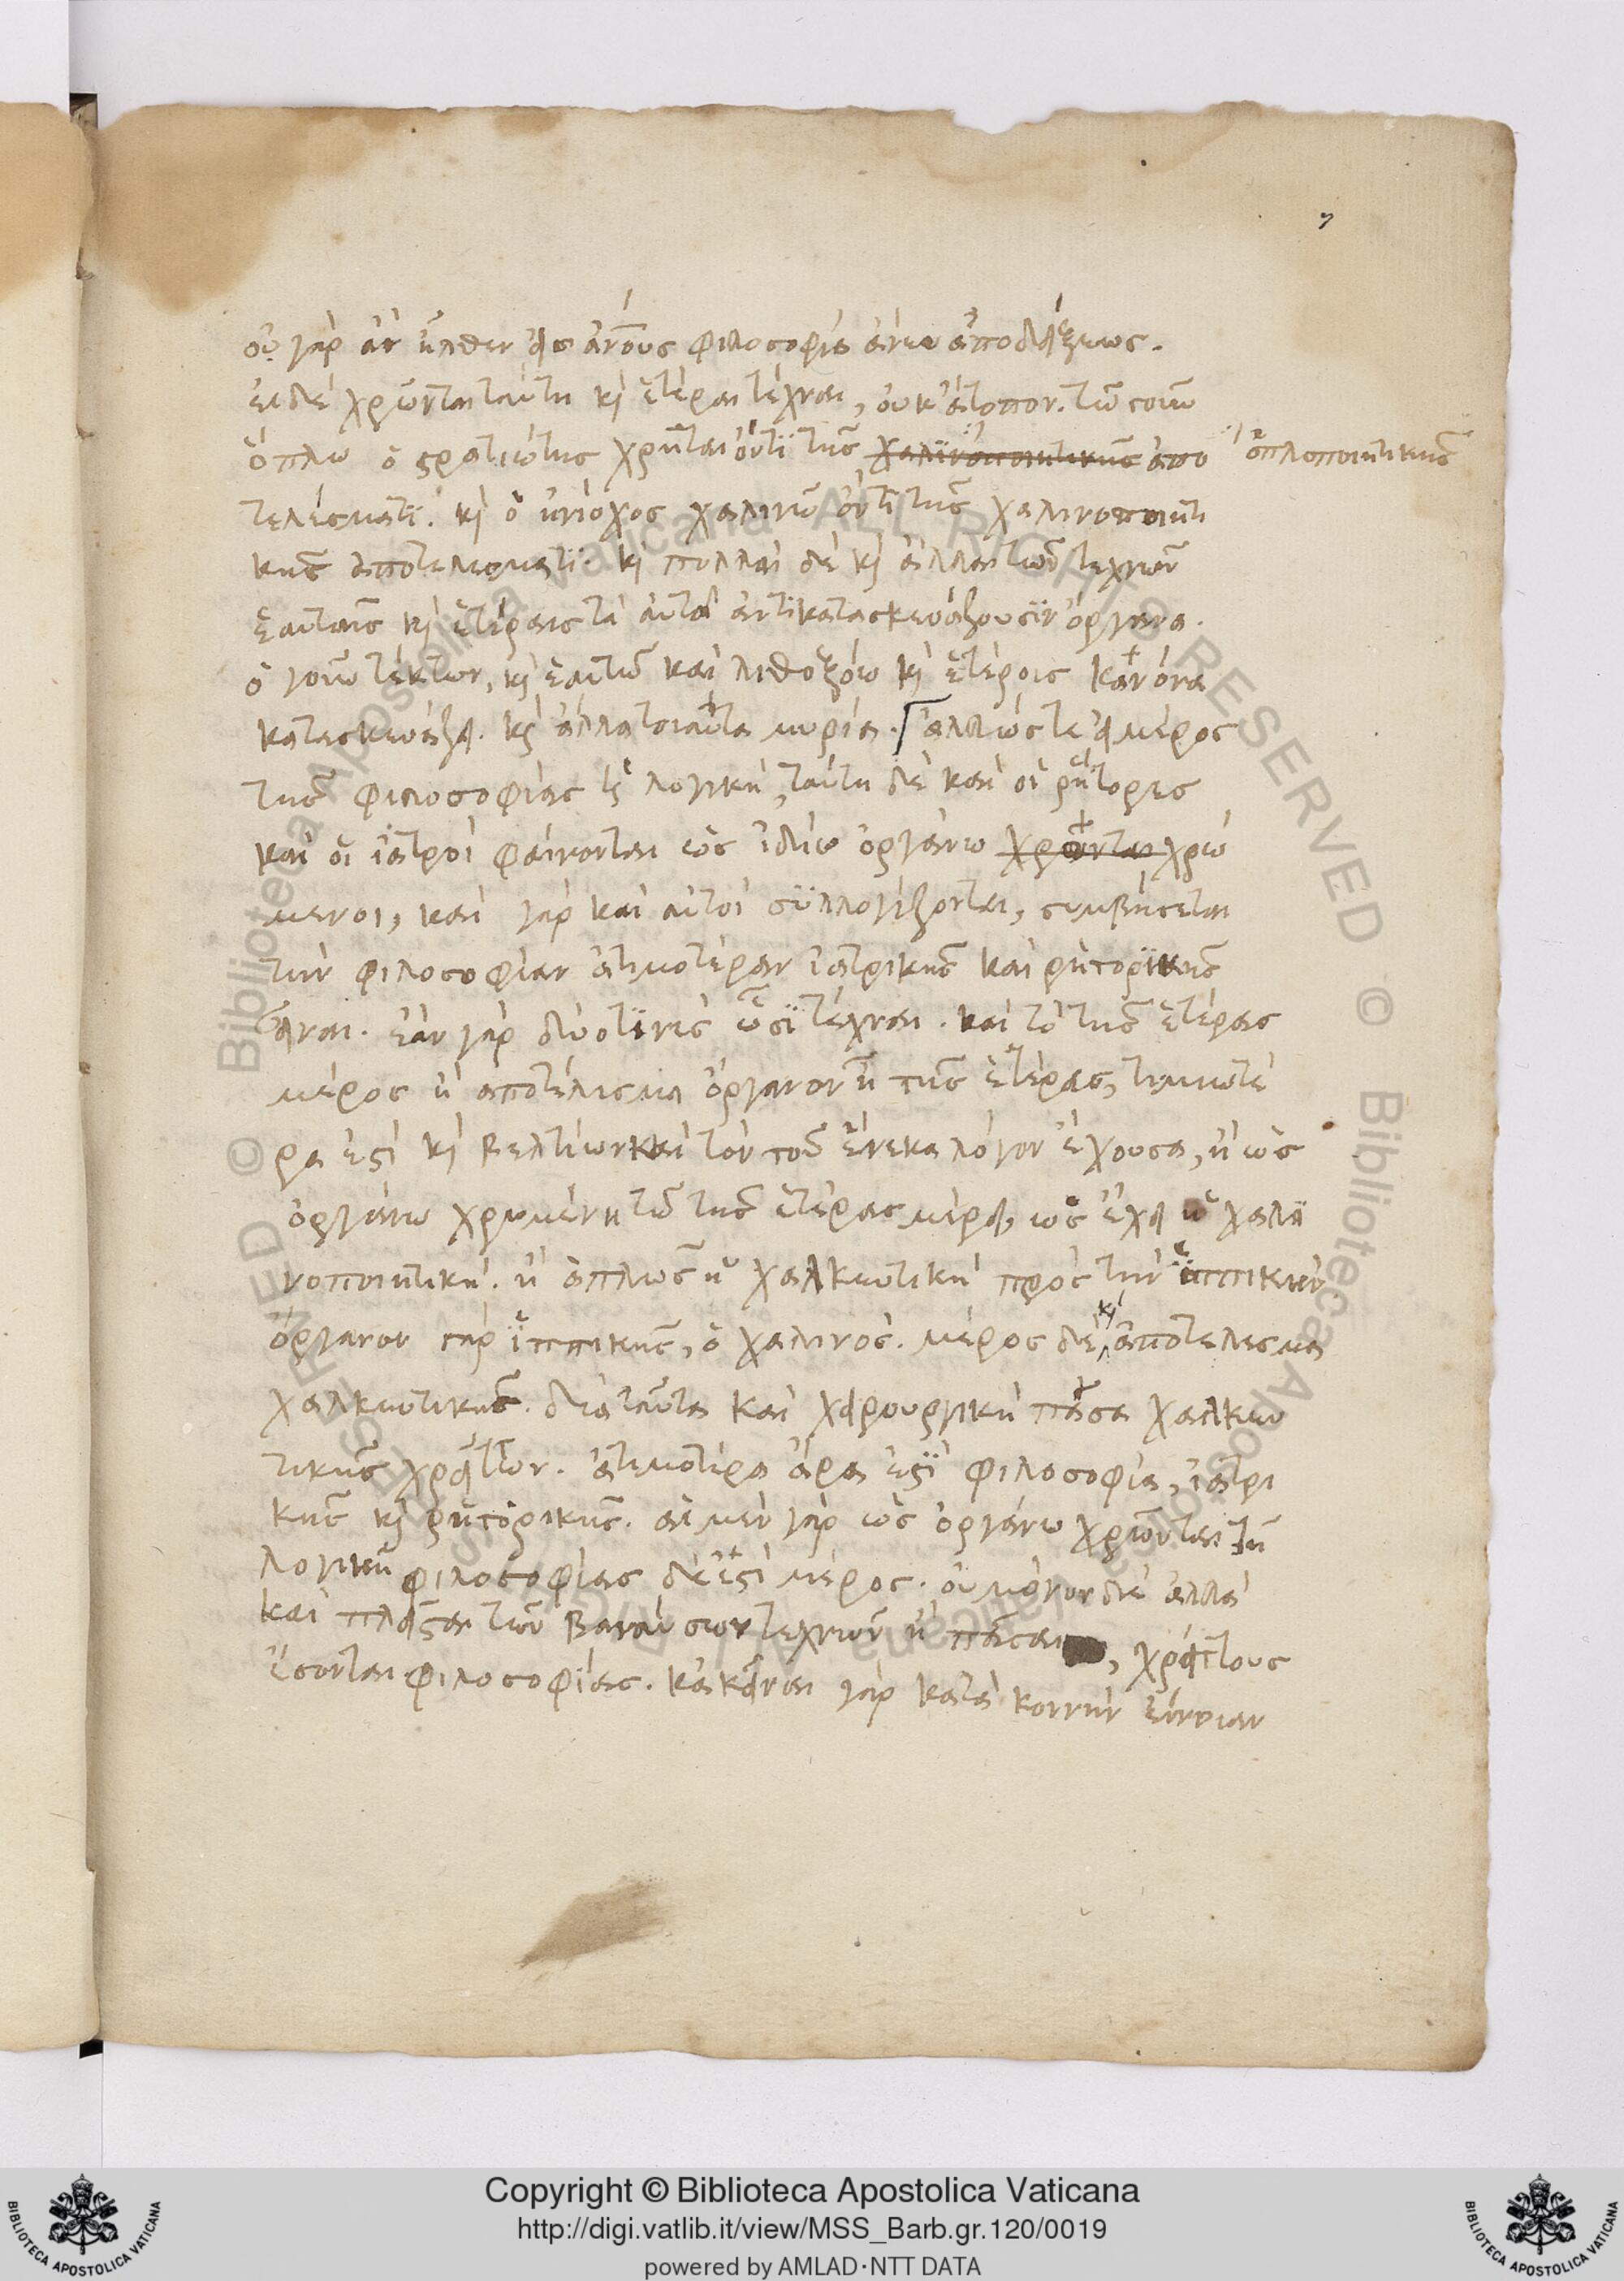 7
οὐ γὰρ ἂν ἦλθεν εἰς ἀν̅ο̅υς φιλοσοφία ἄνευ ἀποδείξεως.
εἰ δὲ χρῶνται ταύτη κὶ ἕτεραι τέχναι, οὐκ ἄτοπον. τῶ γοῦν
ὅπλω ὁ στρατιώτης χρῆται ὄντι τῆς χαλινοποιητικῆς ἀπο ὁπλοποιητικῆς
τελέσματι. κὶ ὁ ἡνίοχος χαλινῶ ὄντι τῆς χαλινοποιητι
κῆς ἀποτελέσματι. κὶ πολλαὶ δὲ κὶ ἄλλαι τῶν τεχνῶν
ἑαυταῖς κὶ ἑτέραις τὰ αὐτὰ ἀντικατασκευάζουσιν ὄργανα.
ὁ γοῦν τέκτων, κὶ ἑαυτῶ καὶ λιθοξόω κὶ ἑτέροις κανόνα
κατασκευάζει. κὶ ἄλλα τοιαῦτα μυρία. ἄλλως τε εἰ μέρος
τῆς φιλοσοφίας ἡ λογικὴ, ταύτη δὲ καὶ οἱ ῥήτορες
καὶ οἱ ἰατροὶ φαίνονται ὡς ἰδίω ὀργάνω χρῶνται χρώ
μενοι, καὶ γὰρ καὶ αὐτοὶ συλλογίζονται, συμβήσεται
τὴν φιλοσοφίαν ἀτιμοτέραν ἰατρικῆς καὶ ῥητορικῆς
εἶναι. ἐὰν γὰρ δύο τινὲς ὦσι τέχναι. καὶ τὸ τῆς ἑτέρας
μέρος ἢ ἀποτέλεσμα ὄργανον ἦ τῆς ἑτέρας, τιμιωτέ
ρα ἐστὶ κὶ βελτίων καὶ τὸν τοῦ ἕνεκα λόγον ἔχουσα, ἡ ὡς
ὀργάνω χρωμένη τῶ τῆς ἑτέρας μέρει, ὡς ἔχει ἡ χαλι
νοποιητικὴ. ἢ ἁπλῶς ἡ χαλκευτικὴ πρὸς τὴν ἱππικὴν
ὄργανον γὰρ ἱππικῆς, ὁ χαλινὸς. μέρος δὲ κὶ ἀποτέλεσμα
χαλκευτικῆς. διὰ ταῦτα καὶ χειρουργικὴ πᾶσα χαλκευ
τικῆς χρείττων. ἀτιμοτέρα ἄρα ἐστὶ φιλοσοφία, ἰατρι
κῆς κὶ ῥητορικῆς. αἱ μὲν γὰρ ὡς ὀργάνω χρῶνται τῆ
λογικῆ φιλοσοφίας δὲ ἐστὶ μέρος. οὐ μόνον δὲ ἀλλὰ
καὶ πλεῖσται τῶν βαναύσων τεχνῶν ἢ πᾶσαι, χρείττους
ἔσονται φιλοσοφίας. κἀκεῖναι γὰρ κατὰ κοινὴν ἔννοιαν
Copyright © Biblioteca Apostolica Vaticana
http://digi.vatlib.it/view/MSS_Barb.gr.120/0019
powered by AMLAD·NTT DATA